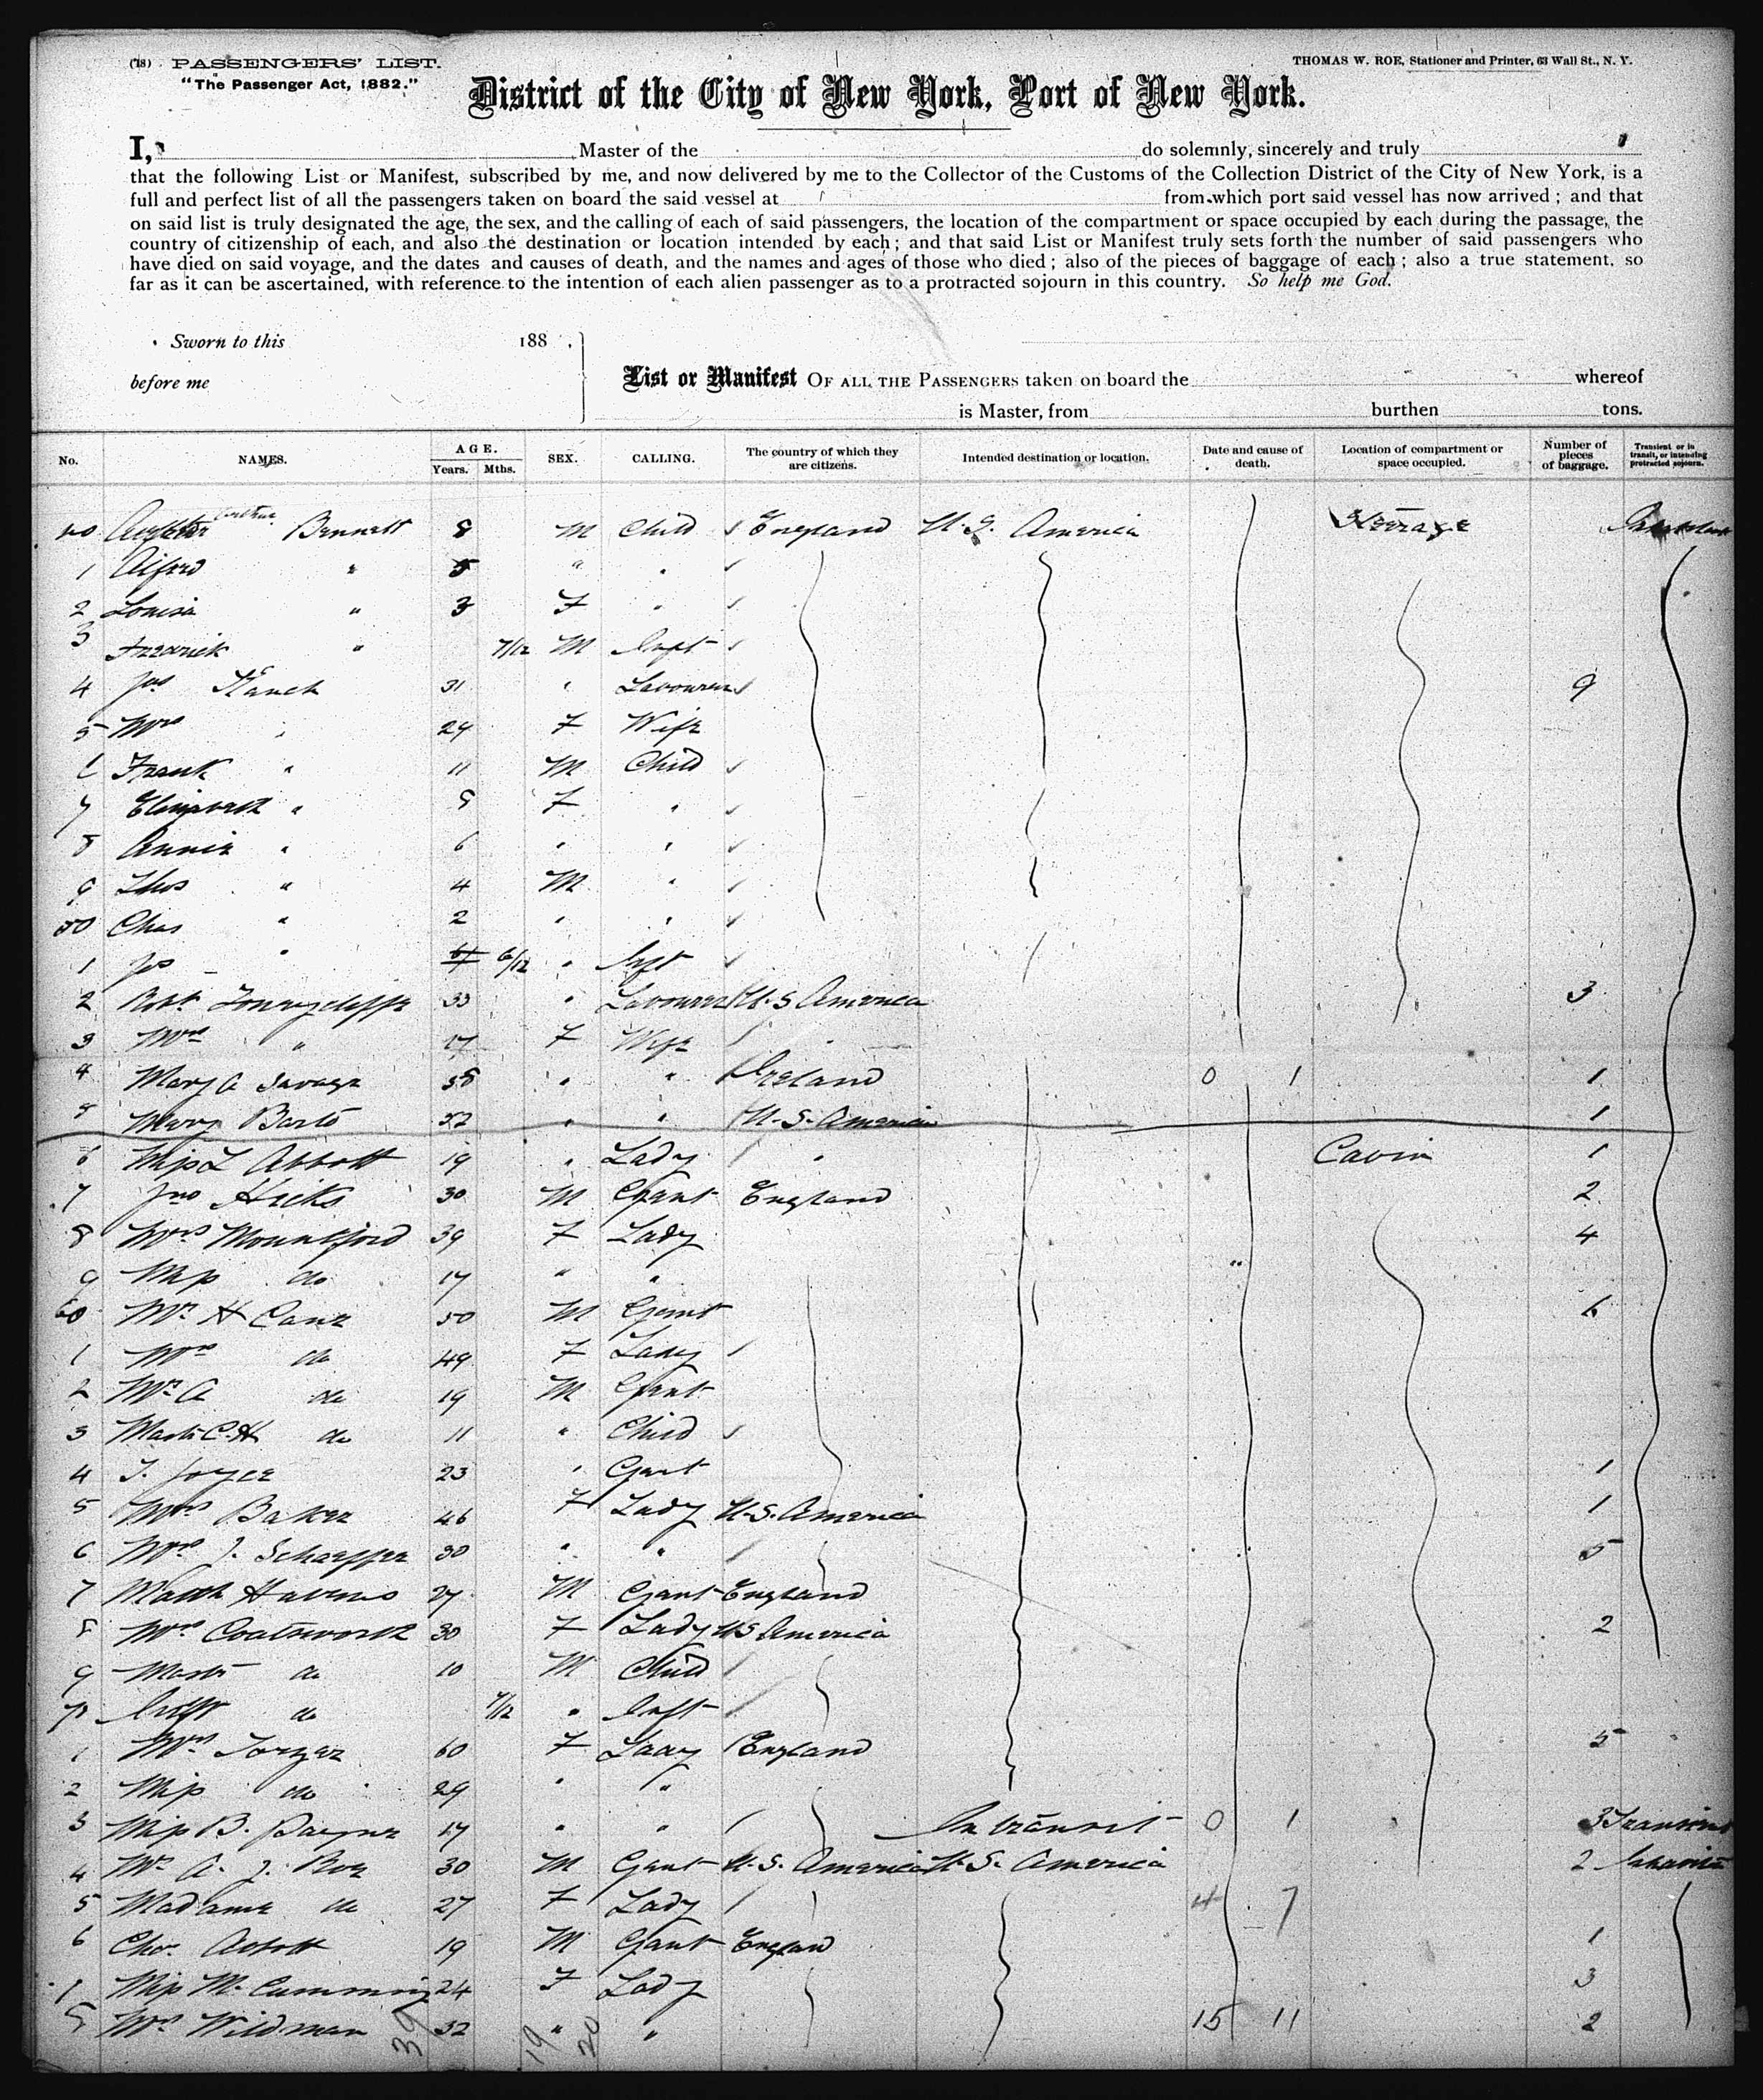 (78) PASSENGERS' LIST. THOMAS W. ROE, Stationer and Printer, 63 Wall St., N. Y.
"The Passenger Act, 1882."
District of the City of New York, Port of New York.
I, Master of the do solemnly, sincerely and truly
that the following List or Manifest, subscribed by me, and now delivered by me to the Collector of the Customs of the Collection District of the City of New York, is a
full and perfect list of all the passengers taken on board the said vessel at from which port said vessel has now arrived; and that
on said list is truly designated the age, the sex, and the calling of each of said passengers, the location of the compartment or space occupied by each during the passage, the
country of citizenship of each, and also the destination or location intended by each; and that said List or Manifest truly sets forth the number of said passengers who
have died on said voyage, and the dates and causes of death, and the names and ages of those who died; also of the pieces of baggage of each; also a true statement, so
far as it can be ascertained, with reference to the intention of each alien passenger as to a protracted sojourn in this country. So help me God.
Sworn to this 188 .
before me
List or Manifest OF ALL THE PASSENGERS taken on board the whereof
is Master, from burthen tons.
No. NAMES. AGE. Years. Mths. SEX. CALLING. The country of which they are citizens. Intended destination or location. Date and cause of death. Location of compartment or space occupied. Number of pieces of baggage. Transient or in transit, or intending protracted sojourn.
40 Arthur Bennett 8 M Child England U.S. America Steerage
1 Alfred " 5 " "
2 Louisa " 3 F "
3 Fredrick " 7/12 M Inft
4 Jas 31 " Labourer 9
5 Mrs " 29 F Wife
6 Frank " 11 M Child
7 Elizabeth " 8 F "
8 Annie " 6 " "
9 Thos " 4 M "
50 Chas " 2 " "
1 Jos " 6/12 " Inft
2 Robt 33 " Labourer U.S America 3
3 Mrs " 27 F Wife
4 Mary A Savage 38 " " Ireland 0 1 1
5 Mary Barto 32 " " U.S. America 1
6 Miss L Abbott 19 " Lady " Cabin 1
7 Jno Hicks 30 M Gent England 2
8 Mrs Mountford 39 F Lady 4
9 Miss do 17 " "
60 Mr H Cane 50 M Gent 6
1 Mrs do 49 F Lady
2 Mr A do 19 M Gent
3 Mastr C.H do 11 " Child
4 T. Joyce 23 " Gent 1
5 Mrs Baker 46 F Lady U.S. America 1
6 Mrs J. Schaeffer 30 " " 5
7 Havens 27 M Gent England
8 Mrs Coatsworth 30 F Lady US America 2
9 Mastr do 10 M Child
70 Inft do 7/12 " Inft
1 Mrs 60 F Lady England 5
2 Miss do 29 " "
3 Miss B. Payne 17 " " In transit 0 1 3 Transient
4 Mr A. J. Roe 30 M Gent U.S. America U.S. America 2
5 Madame do 27 F Lady 4 7
6 Chas. Abbott 19 M Gent England 1
7 Miss M. Cumming 24 F Lady 3
8 Mrs Wildman 32 " " 15 11 2
39 19 20